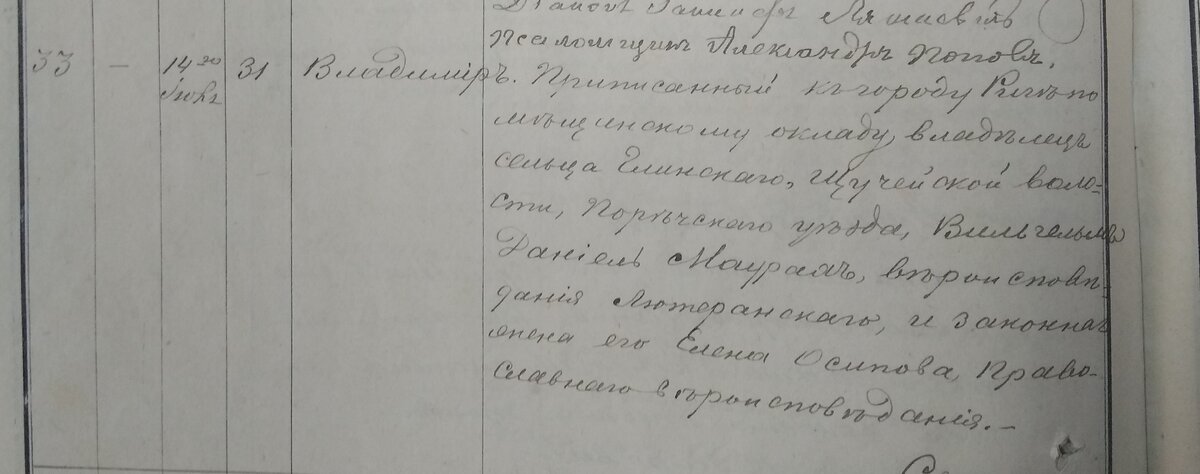 Псаломщикъ Александръ Поповъ.
33 – 14го Іюня 31 Владиміръ. Приписанный къ городу Ригѣ по
мѣщанскому окладу, владѣлецъ
сельца Елинскаго, Щучейской воло-
сти, Порѣчскаго уѣзда, Вильгельмъ
Даніель Маураль, вѣроисповѣ-
данія Лютеранскаго, и законная
жена его Елена Осипова, Право-
славнаго вѣроисповѣданія. –